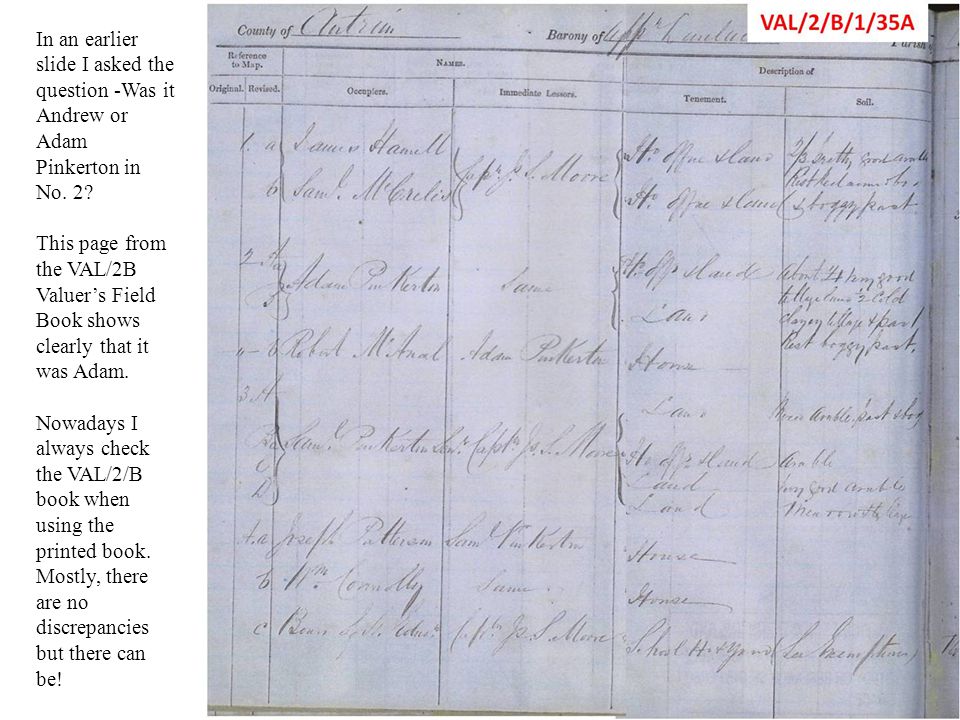 In an earlier
slide I asked the
question -Was it
Andrew or
Adam
Pinkerton in
No. 2?
This page from
the VAL/2B
Valuer’s Field
Book shows
clearly that it
was Adam.
Nowadays I
always check
the VAL/2/B
book when
using the
printed book.
Mostly, there
are no
discrepancies
but there can
be!
VAL/2/B/1/35A
County of Antrim Barony of Parish
Reference to Map. Names. Description of
Original. Revised. Occupiers. Immediate Lessors. Tenement. Soil.
1. a James Hamell Capt. Js. S. Moore Ho. office & land pretty good arable
b Saml. McCrelis Ho. office & land & boggy past
2 A Adam Pinkerton Same Ho. off & land About very good
B Land
clayey tillage & past
b Robert McAnal Adam Pinkerton House Rest boggy past.
3 A Land arable, past & bog
B Saml. Pinkerton Senr. Capt. Js. S. Moore Ho. off & land arable
C Land very good arable
D Land
4. a Joseph Patterson Saml. Pinkerton House
b Wm. Connolly Same House
c Capt. Js. S. Moore School Ho. & yard See Exemptions